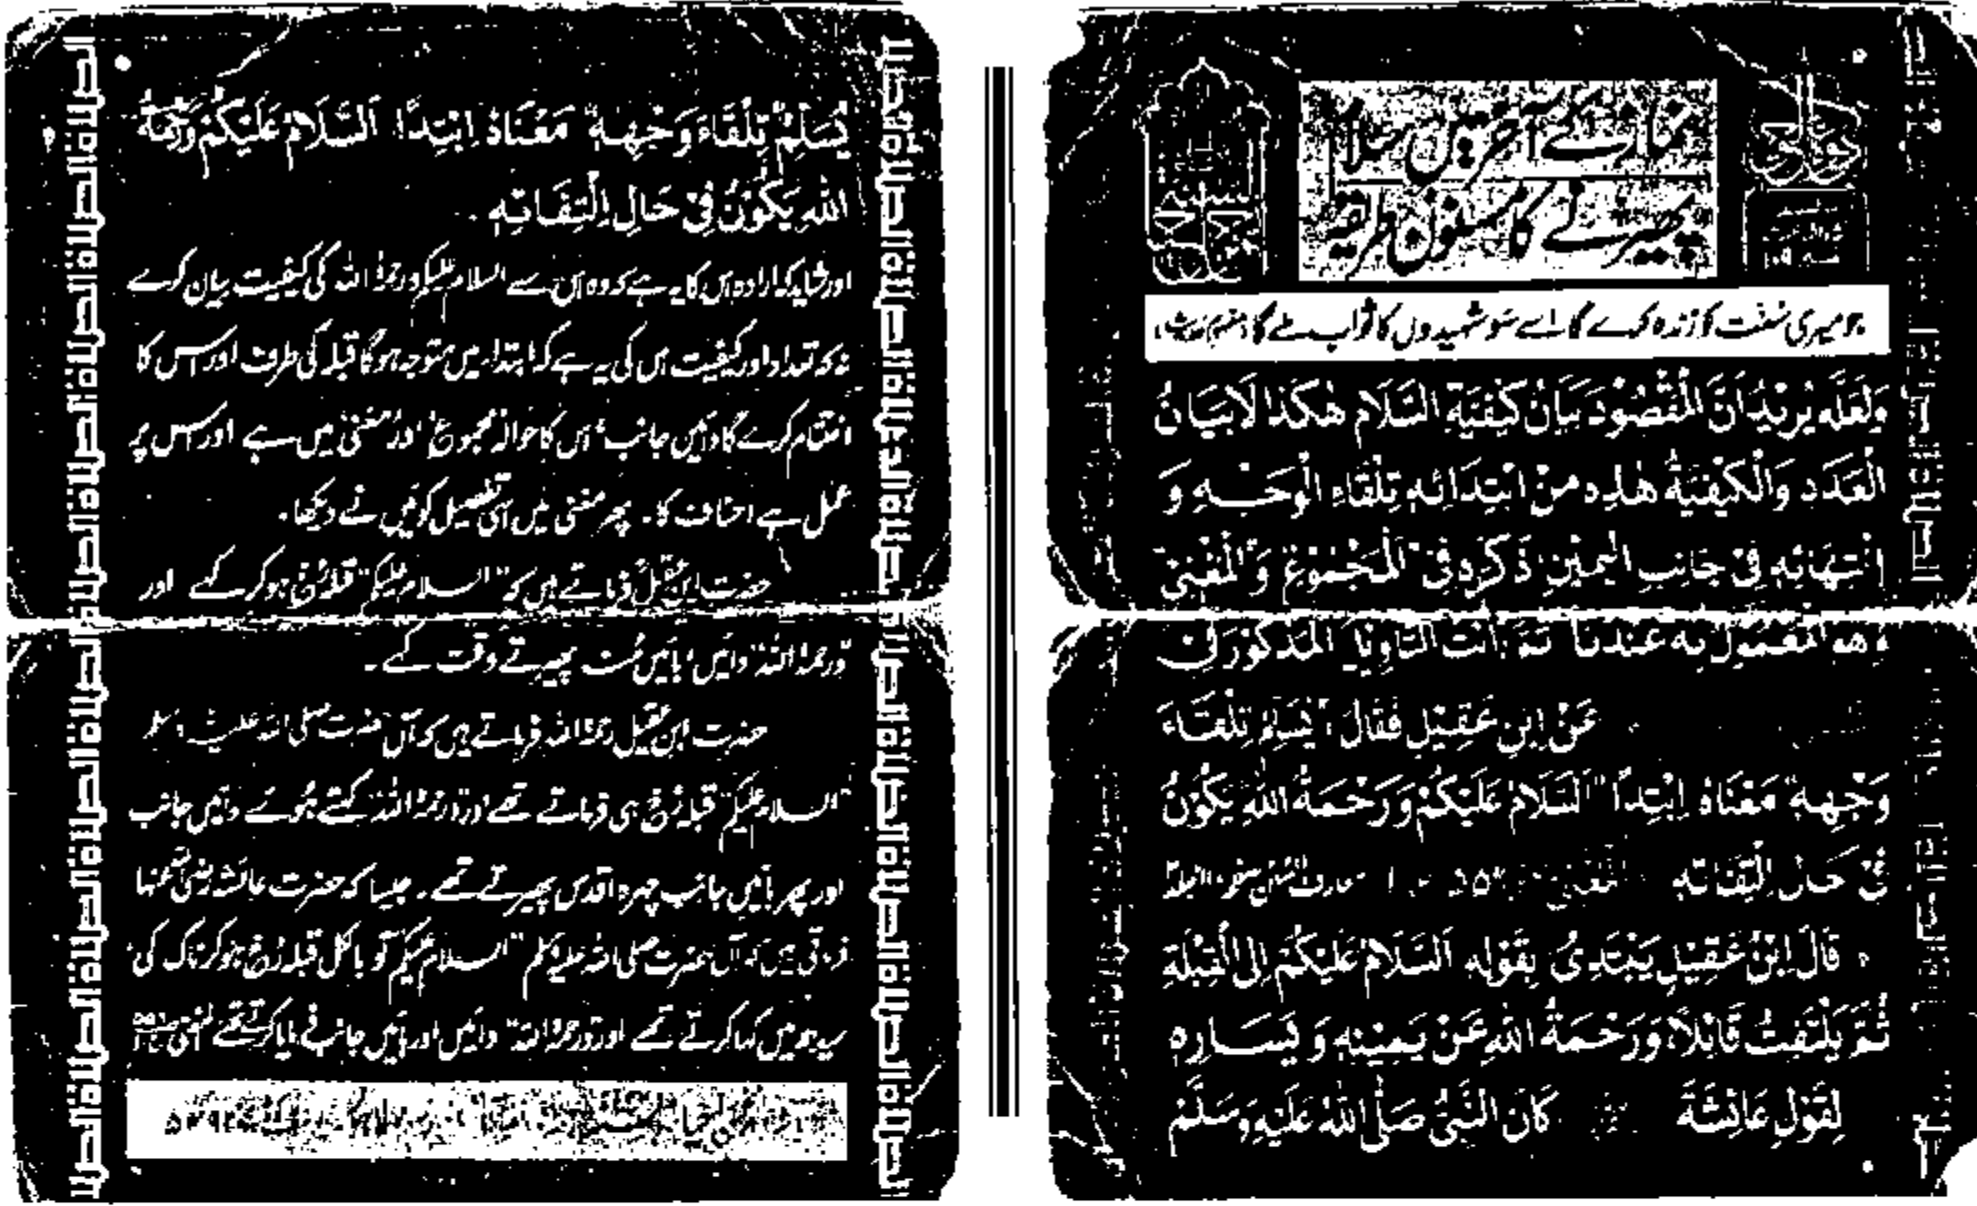 نماز کے آخر میں سلام
پھیرنے کا مسنون طریقہ
جو میری سنت کو زندہ کرے گا اسے سو شہیدوں کا ثواب ملے گا
وَلَعَلَّهٗ يُرِيْدُ اَنَّ الْمَقْصُوْدَ بَيَانُ كَيْفِيَّةِ السَّلَامِ هٰكَذَا لَا بَيَانُ
الْعَدَدِ وَالْكَيْفِيَّةُ هٰذِهٖ مِنْ ابْتِدَائِهٖ تِلْقَاءَ الْوَجْهِ وَ
انْتِهَائِهٖ فِيْ جَانِبِ الْيَمِيْنِ ذَكَرَهٗ فِي الْمَجْمُوْعِ وَالْمُغْنِيْ
وهو المعمول به عندنا ثم رأيت التاويل المذكور في
عَنْ ابْنِ عَقِيْلٍ فَقَالَ يُسَلِّمُ تِلْقَاءَ
وَجْهِهٖ مَعْنَاهُ اِبْتِدَاءً اَلسَّلَامُ عَلَيْكُمْ وَرَحْمَةُ اللهِ يَكُوْنُ
فِيْ حَالِ الْتِفَاتِهٖ المغنى معارف السنن
قَالَ ابْنُ عَقِيْلٍ يَبْتَدِئُ بِقَوْلِهٖ اَلسَّلَامُ عَلَيْكُمْ اِلَى الْقِبْلَةِ
ثُمَّ يَلْتَفِتُ قَائِلًا وَرَحْمَةُ اللهِ عَنْ يَمِيْنِهٖ وَيَسَارِهٖ
لِقَوْلِ عَائِشَةَ كَانَ النَّبِيُّ صَلَّى اللهُ عَلَيْهِ وَسَلَّمَ
يُسَلِّمُ تِلْقَاءَ وَجْهِهٖ مَعْنَاهُ اِبْتِدَاءً اَلسَّلَامُ عَلَيْكُمْ وَرَحْمَةُ
اللهِ يَكُوْنُ فِيْ حَالِ الْتِفَاتِهٖ
اور شاید کہ ارادہ اس کا یہ ہے کہ وہ اس سے السلام علیکم ورحمۃ اللہ کی کیفیت بیان کرے
نہ کہ تعداد اور کیفیت اس کی یہ ہے کہ ابتداء میں متوجہ ہوگا قبلہ کی طرف اور اس کا
اختتام کرے گا دائیں جانب، اس کا حوالہ مجموع اور مغنی میں ہے اور اس پر
عمل ہے احناف کا۔ پھر مغنی میں اسی تفصیل کو میں نے دیکھا۔
حضرت ابن عقیل فرماتے ہیں کہ "السلام علیکم" قبلہ رُخ ہو کر کہے اور
"ورحمۃ اللہ" دائیں، بائیں مُنہ پھیرتے وقت کہے۔
حضرت ابن عقیل رحمۃ اللہ فرماتے ہیں کہ آں حضرت صلی اللہ علیہ وسلم
"السلام علیکم" قبلہ رُخ ہی فرماتے تھے اور "ورحمۃ اللہ" کہتے ہوئے دائیں جانب
اور پھر بائیں جانب چہرہ اقدس پھیرتے تھے۔ جیسا کہ حضرت عائشہ رضی اللہ عنہا
فرماتی ہیں کہ آں حضرت صلی اللہ علیہ وسلم "السلام علیکم" تو بالکل قبلہ رُخ ہو کر ناک کی
سیدھ میں کہا کرتے تھے اور "ورحمۃ اللہ" دائیں اور بائیں جانب فرمایا کرتے تھے المغنی